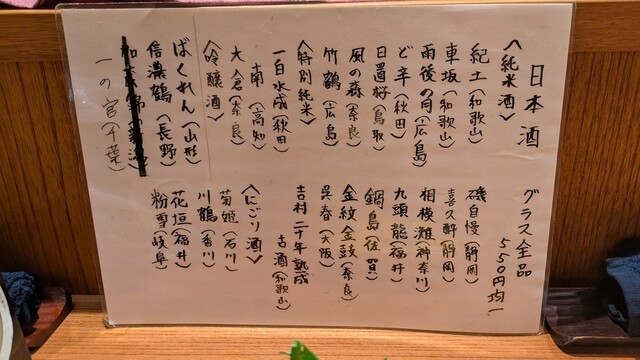 日本酒
グラス全品
550円均一
〈純米酒〉
紀土(和歌山)
車坂(和歌山)
雨後の月(広島)
ど辛(秋田)
日置桜(鳥取)
風の森(奈良)
竹鶴(広島)
〈特別純米〉
一白水成(秋田)
南(高知)
大倉(奈良)
〈吟醸酒〉
ばくれん(山形)
信濃鶴(長野)
一の宮(千葉)
磯自慢(静岡)
喜久酔(静岡)
相模灘(神奈川)
九頭龍(福井)
鍋島(佐賀)
金紋金鼓(奈良)
呉春(大阪)
吉村二十年熟成
古酒(和歌山)
〈にごり酒〉
菊姫(石川)
川鶴(香川)
花垣(福井)
粉雪(岐阜)